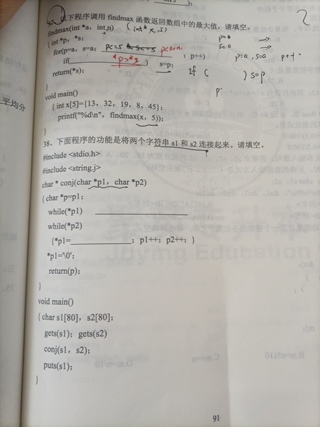 以下程序调用 findmax 函数返回数组中的最大值,请填空。
findmax(int *a, int n) (int* x, 5)
{ int *p, *s;
for(p=a, s=a; p<5 ; p++)
if( *p>*s ) s=p;
return(*s);
}
void main()
{ int x[5]={13, 32, 19, 8, 45};
printf("%d\n", findmax(x, 5));
}
38、下面程序的功能是将两个字符串 s1 和 s2 连接起来,请填空。
#include <stdio.h>
#include <string.j>
char * conj(char *p1, char *p2)
{ char *p=p1;
while(*p1)
while(*p2)
{*p1=; p1++; p2++; }
*p1='\0';
return(p);
}
void main()
{ char s1[80], s2[80];
gets(s1); gets(s2)
conj(s1, s2);
puts(s1);
}
91